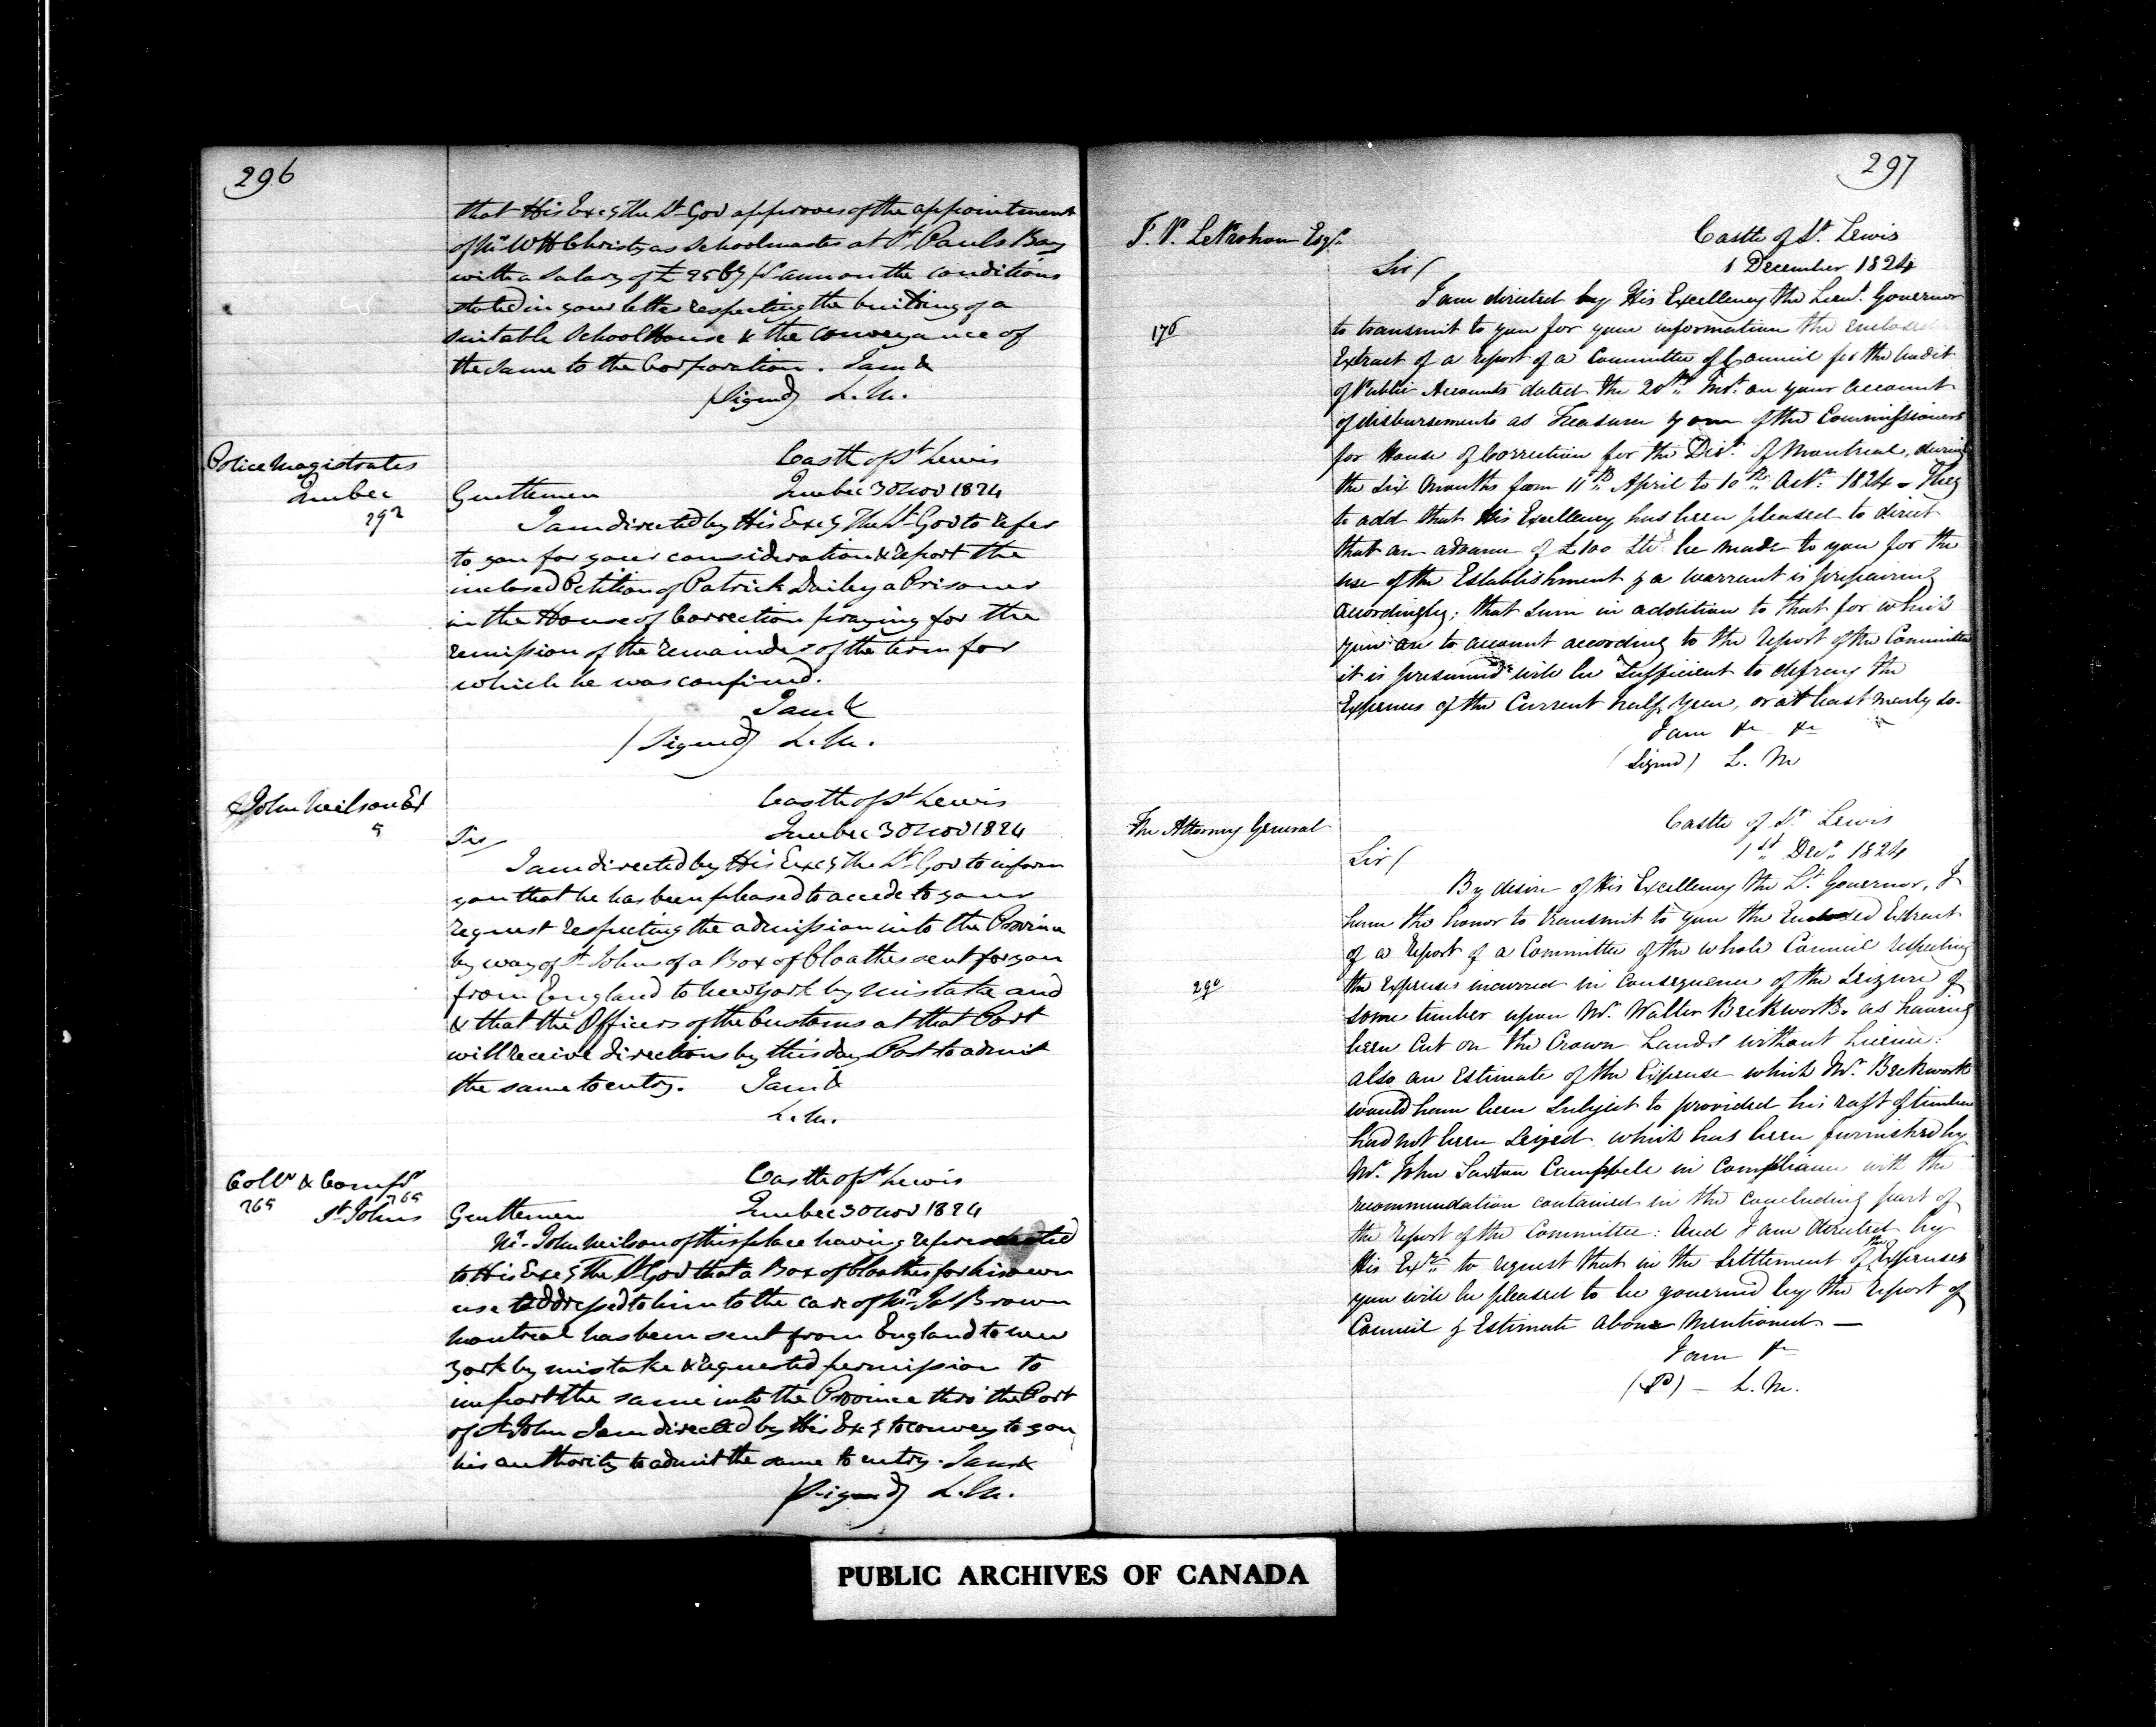 296
that His Excy The Lt Gov approves of the appointment
of Mr W H Christy as Schoolmaster at St Pauls Bay
with a Salary of £ Cy pr annum on the conditions
stated in your letter respecting the building of a
suitable School House & the conveyance of
the same to the Corporation. I am &
(Signed) L. M.
Police Magistrates
Quebec
292
Castle of St Lewis
Quebec 30 Nov 1824
Gentlemen
I am directed by His Excy The Lt Gov to refer
to you for your consideration & report the
inclosed Petition of Patrick Dailey a Prisoner
in the House of Correction praying for the
remission of the remainder of the term for
which he was confined.
I am &
(Signed) L. M.
John Neilson Es
Castle of St Lewis
Quebec 30 Nov 1824
Sir
I am directed by His Excy The Lt Gov to inform
you that he has been pleased to accede to your
request respecting the admission into the Province
by way of St Johns of a Box of Cloathes sent for you
from England to New York by mistake and
& that the Officers of the Customs at that Port
will receive directions by this day Post to admit
the same to entry. I am &
L. M.
Collr & Compr
265 265
St Johns
Castle of St Lewis
Quebec 30 Nov 1824
Gentlemen
Mr John Neilson of this place having represented
to His Excy The Lt Gov that a Box of Cloathes for his own
use addressed to him to the care of Mr Jas Brown
Montreal has been sent from England to New
York by mistake & requested permission to
import the same into the Province thro' the Port
of St John I am directed by His Excy to convey to you
his authority to admit the same to entry. I am &
(Signed) L. M.
297
Castle of St. Lewis
1 December 1824
Sir (
I am directed by His Excellency the Lieut. Governor
to transmit to you for your information the enclosed
Extract of a report of a Committee of Council for the Audit
of Public Accounts dated the 20th Inst. on your account
of disbursements as Treasurer & one of the Commissioners
for House of Correction for the Dist. of Montreal, during
the six Months from 11th April to 10th Octr. 1824
to add that His Excellency has been pleased to direct
that an advance of £100 Stg be made to you for the
use of the Establishment & a warrant is preparing
accordingly; that sum in addition to that for which
you are to account according to the report of the Committee
it is presumed will be sufficient to defray the
Expenses of the Current half year, or at least nearly so.
I am &c &c
(Signed) L. M
F. P. LeProhon Esqr.
176
The Attorney General
290
Castle of St. Lewis
1st Decr. 1824
Sir (
By desire of His Excellency the Lt. Governor, I
have the honor to transmit to you the Enclosed Extract
of a Report of a Committee of the whole Council respecting
the Expenses incurred in consequence of the Seizure of
some timber upon Mr. Walter Beckworth as having
been Cut on the Crown Lands without Licence:
also an Estimate of the Expense which Mr. Beckworth
would have been Subject to provided his raft of timber
had not been Seized which has been furnished by
Mr. John Saxton Campbell in Compliance with the
recommendation contained in the concluding part of
the report of the Committee: And I am directed by
His Excy. to request that in the Settlement of the Expenses
you will be pleased to be governed by the report of
Council & Estimate above Mentioned. —
I am &c
(Sd) — L. M.
PUBLIC ARCHIVES OF CANADA